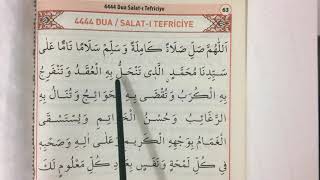 4444 Dua Salat-ı Tefriciye
63
4444 DUA / SALAT-I TEFRİCİYE
اَللّٰهُمَّ صَلِّ صَلَاةً كَامِلَةً وَسَلِّمْ سَلَامًا تَامًّا عَلٰى
سَيِّدِنَا مُحَمَّدٍ الَّذِى تَنْحَلُّ بِهِ الْعُقَدُ وَتَنْفَرِجُ
بِهِ الْكُرَبُ وَتُقْضٰى بِهِ الْحَوَائِجُ وَتُنَالُ بِهِ
الرَّغَائِبُ وَحُسْنُ الْخَوَاتِمِ وَيُسْتَسْقَى
الْغَمَامُ بِوَجْهِهِ الْكَرِيمِ وَعَلٰى اٰلِهِ وَصَحْبِهِ
فِى كُلِّ لَمْحَةٍ وَنَفَسٍ بِعَدَدِ كُلِّ مَعْلُومٍ لَكَ